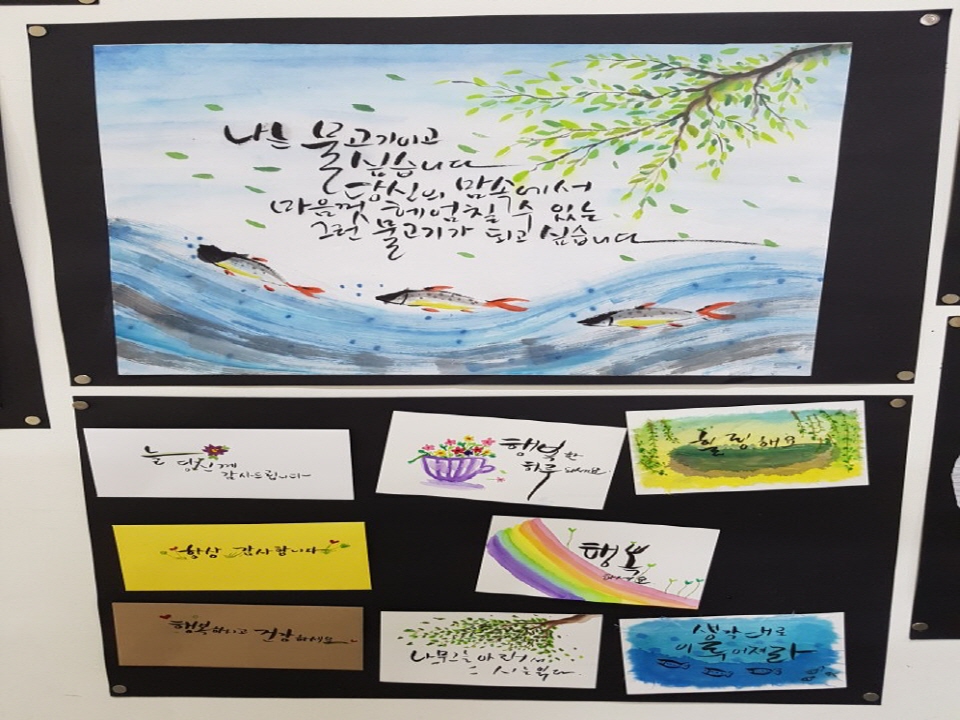 나는 물고기이고
싶습니다
당신의 맘속에서
마음껏 헤엄칠 수 있는
그런 물고기가 되고 싶습니다
늘 당신께
감사드립니다
행복한
하루 되세요
힐링해요
항상 감사합니다
행복
하세요
행복하시고 건강하세요
나무그늘아래서
시를 읽다
생각대로
이루어져라